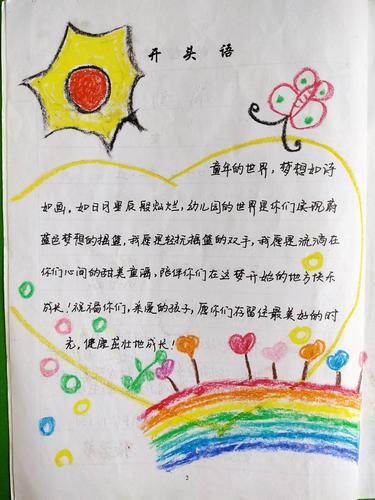 开头语
童年的世界，梦想如诗
如画。如日月星辰般灿烂，幼儿园的世界是你们实现蔚
蓝色梦想的摇篮，我愿是轻抚摇篮的双手，我愿是流淌在
你们心间的甜美童谣，陪伴你们在这梦开始的地方快乐
成长！祝福你们，亲爱的孩子，愿你们在留住最美好的时
光，健康茁壮地成长！
2